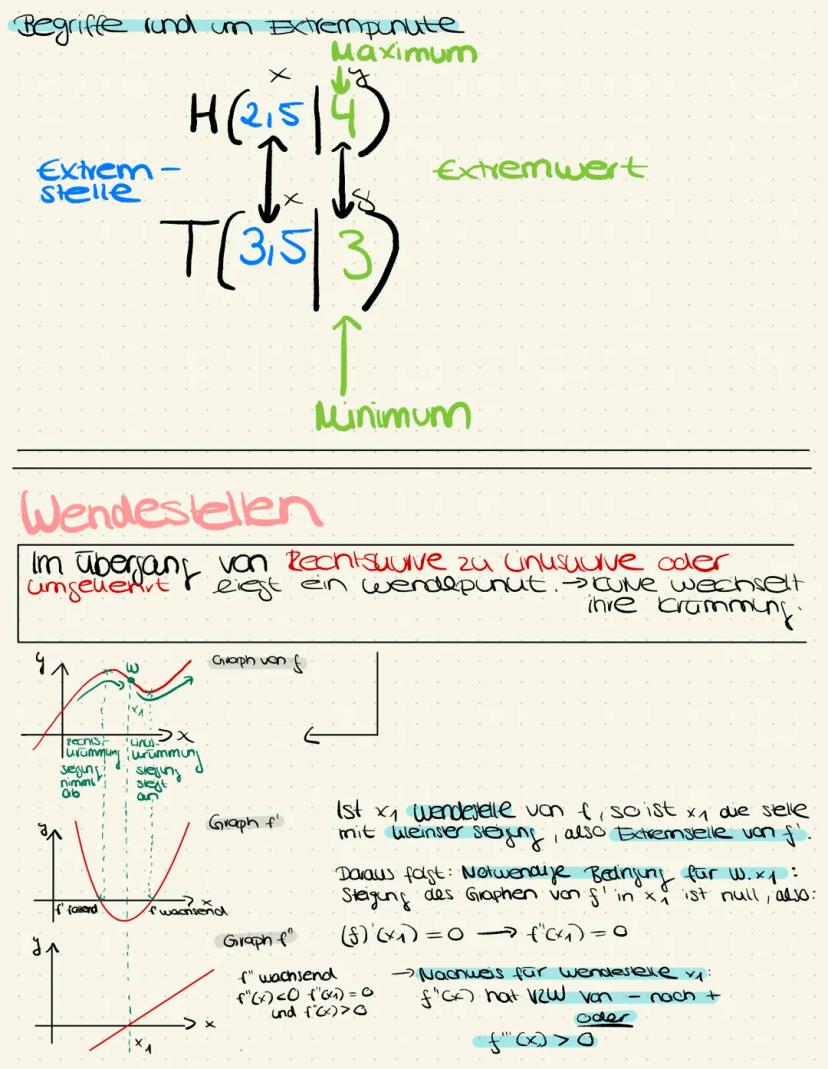 Begriffe rund um Extrempunkte
Maximum
x y
H(2,5|4)
Extrem-
stelle
Extremwert
x y
T(3,5|3)
Minimum
Wendestellen
Im Übergang von Rechtskurve zu Linkskurve oder
umgekehrt liegt ein Wendepunkt. → Kurve wechselt
ihre Krümmung.
y
W
Graph von f
x1
x
Rechts-
krümmung
Steigung
nimmt
ab
Links-
krümmung
Steigung
steigt
an
Ist x1 Wendestelle von f, so ist x1 die Stelle
mit kleinster Steigung, also Extremstelle von f'.
y
Graph f'
x
f' fallend
f' wachsend
Daraus folgt: Notwendige Bedingung für W. x1:
Steigung des Graphen von f' in x1 ist null, also:
(f)'(x1) = 0 → f''(x1) = 0
y
Graph f''
f'' wachsend
f''(x) < 0 f''(x1) = 0
und f''(x) > 0
x
x1
→ Nachweis für Wendestelle x1:
f''(x) hat VZW von - nach +
oder
f'''(x) > 0